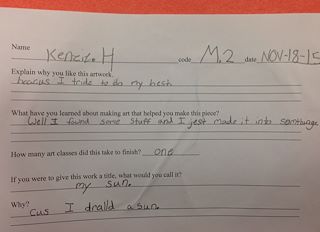 Name Kenzie. H code M.2 date NOV-18-15
Explain why you like this artwork.
beacus I tride to do my best
What have you learned about making art that helped you make this piece?
Well I found some stuff and I jest made it into somthinge
How many art classes did this take to finish? one
If you were to give this work a title, what would you call it?
my sun.
Why?
cus I dralld a sun.